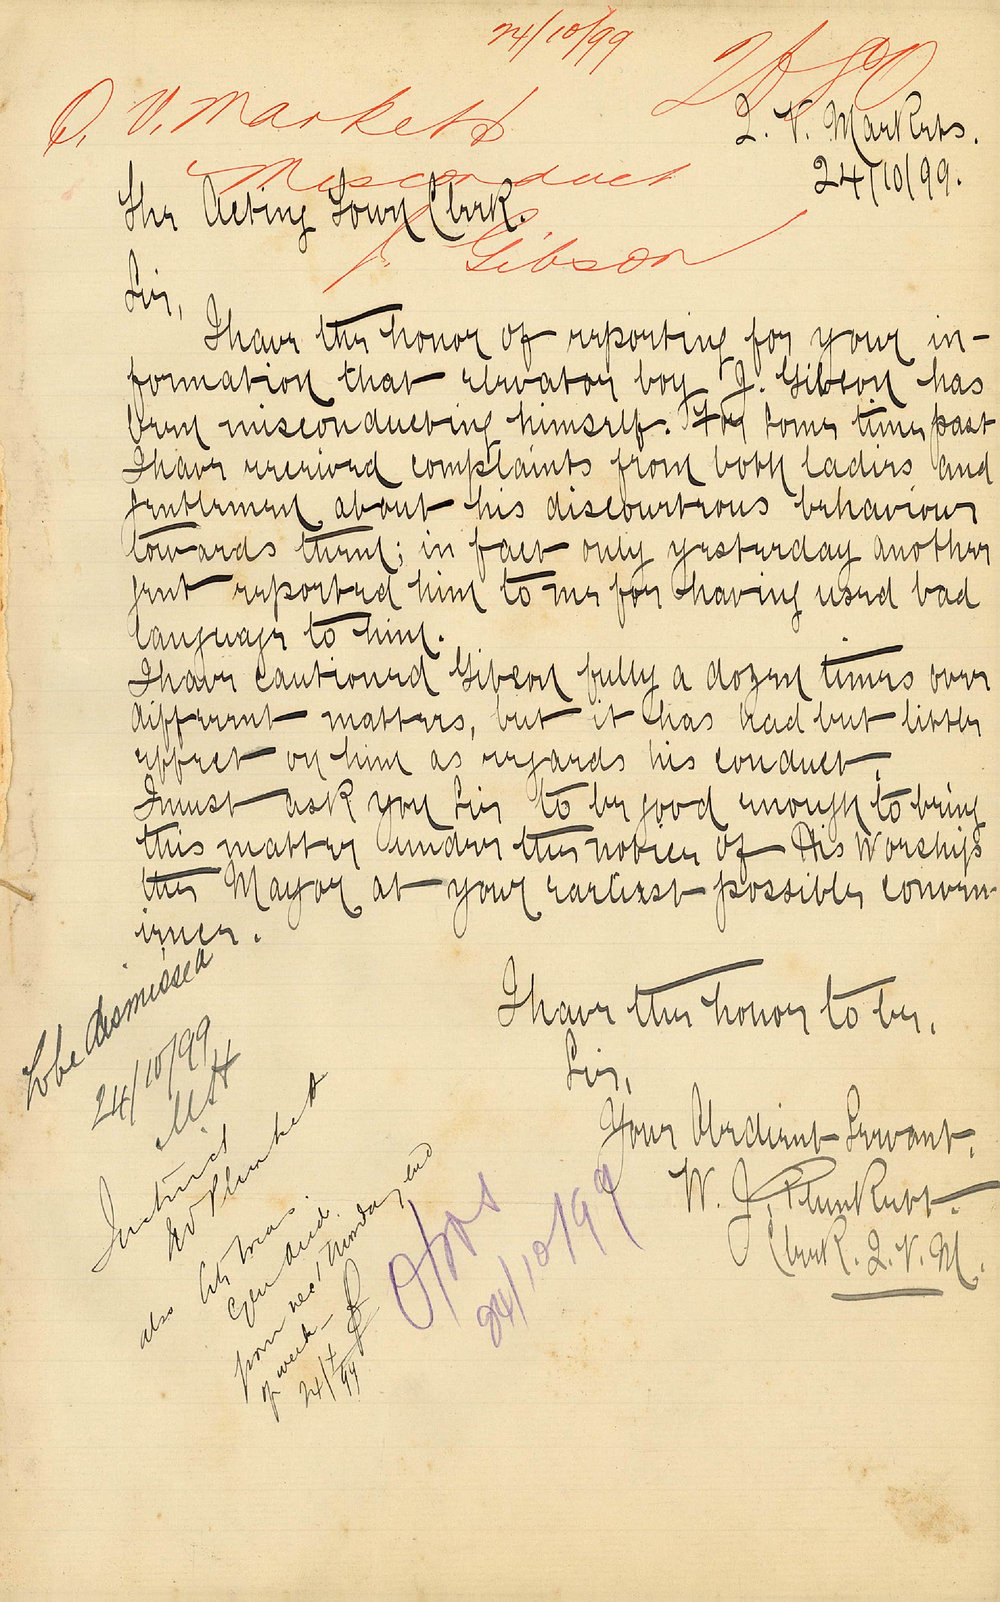 24/10/99
Q. V. Markets
Misconduct
J. Gibson
Q. V. Markets.
24/10/99.
The Acting Town Clerk.
Sir,
I have the honor of reporting for your in-
formation that elevator boy J. Gibson has
been misconducting himself. For some time past
I have received complaints from both ladies and
gentlemen about his discourteous behaviour
towards them; in fact only yesterday another
gent reported him to me for having used bad
language to him.
I have cautioned Gibson fully a dozen times over
different matters, but it has had but little
effect on him as regards his conduct.
I must ask you Sir to be good enough to bring
this matter under the notice of His Worship
the Mayor at your earliest possible conven-
ience.
I have the honor to be,
Sir,
Your Obedient Servant,
W. J. Plunkett.
Clerk. Q. V. M.
To be dismissed
24/10/99
MH
Instruct
Mr Plunkett
also
from next Monday, end
of week
24/X
99
24/10/99